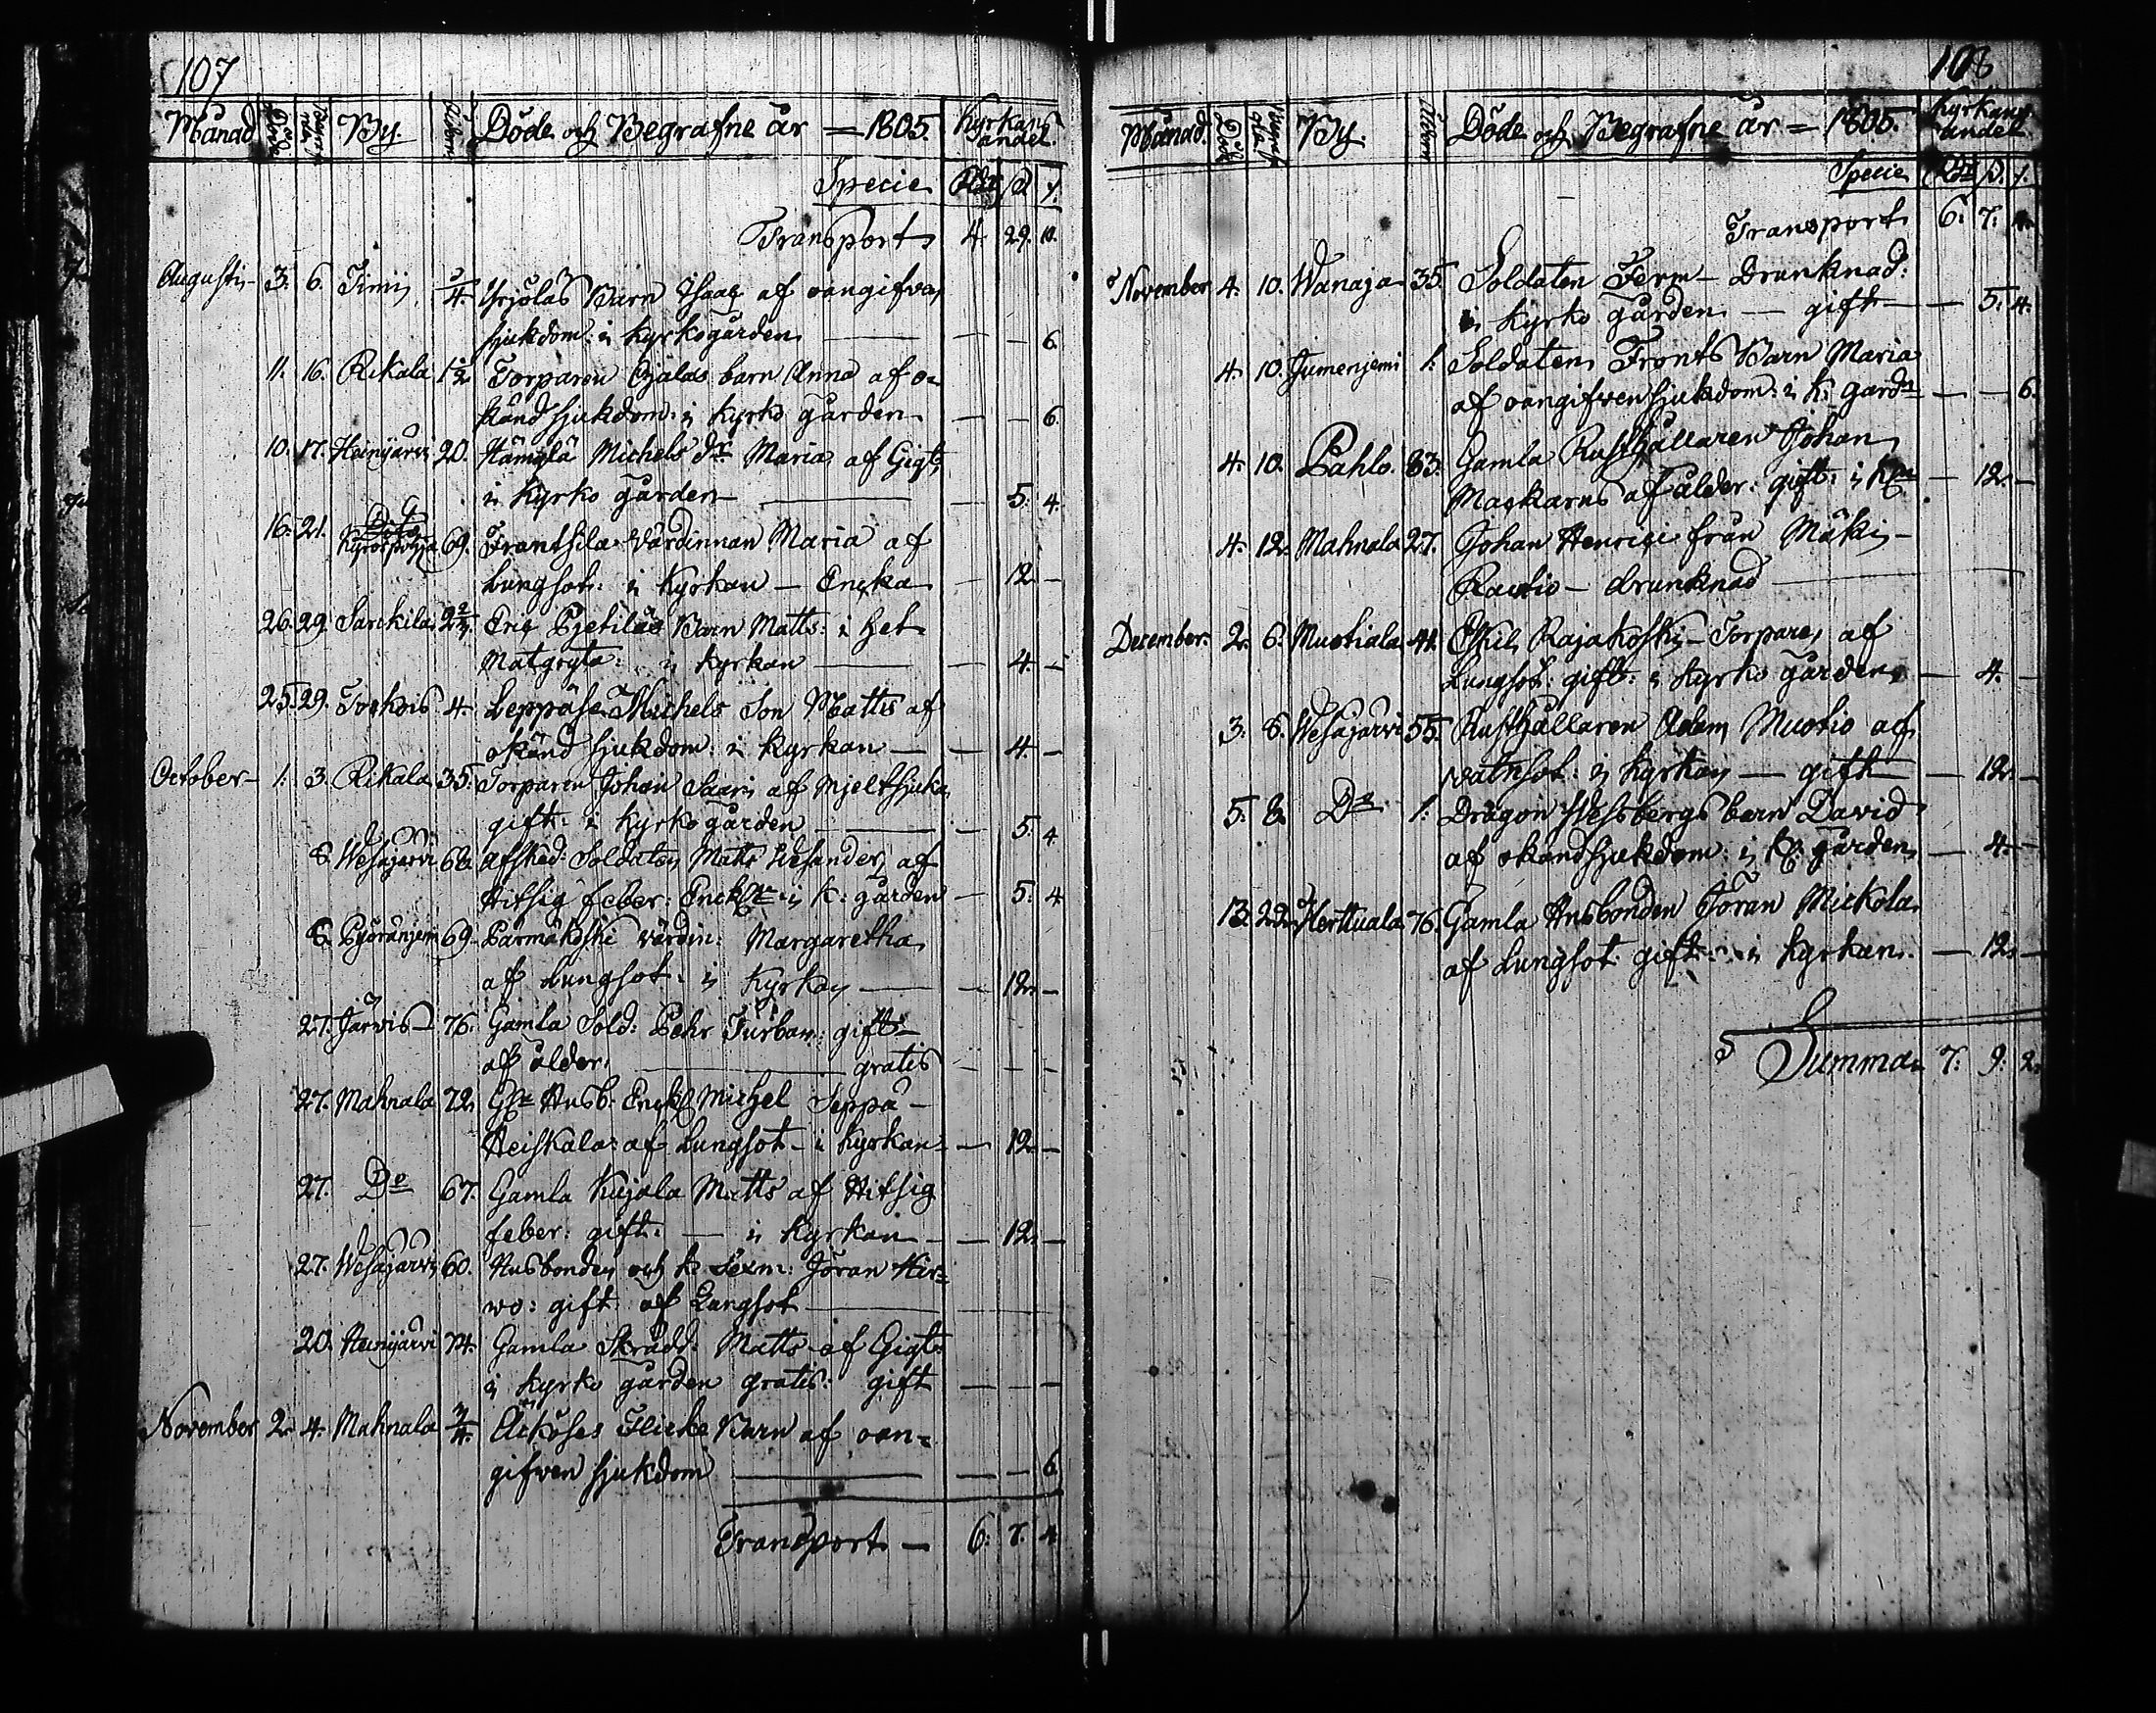 107
Månad Döde Begrafne By. Ålder Döde och Begrafne år = 1805. Kyrkans andel.
Specie Rdr β r.
Transport 4. 29. 10.
Augusti 3. 6. Timij 3/4 Yrjölas Barn Isaac af oangifven
sjukdom: i kyrkogården — — 6.
11. 16. Rikala 1 1/2 Torparen Ojalas barn Anna af o-
känd sjukdom: i kyrko gården — — 6.
10. 17. Heinijärvi 20. Hämylä Michels dr Maria af Gigt,
i Kyrko gården — 5. 4.
16. 21. Kyröspohja 69. Frantsila Värdinnan Maria af
Lungsot: i Kyrkan — Encka — 12. —
26. 29. Sarckila Eric Pjetiläs Barn Matts: i het
Matgryta: i kyrkan — 4. —
25. 29. Tockois 4. Leppäse Michels Son Matts af
okänd sjukdom: i kyrkan — 4. —
October 1. 3. Rikala 35. Torparen Johan Saari af Mjeltsjuka,
gift: i kyrko gården — 5. 4
8. Wesajärvi 68. afsked: Soldaten Matts Wesander, af
Hitsig feber: Enckl: i K: gården — 5. 4
8. Pyöränjemi 69. Parmakoski värdin: Margaretha
af Lungsot: i Kyrkan — 12. —
27. Järvis 76. Gamla Sold: Pehr Turban: gift
af ålder. — gratis — — —
27. Mahnala 72. Gla Husb: Enckl Michel Seppä-
Heiskala: af Lungsot - i kyrkan — 12. —
27. Do 67. Gamla Kujala Matts af Hitsig
feber: gift. — i kyrkan — 12. —
27. Wesajärvi 60. Husbonden och k. Sexm: Jöran Hir-
vo: gift af Lungsot
20. Heinijärvi 74. Gamla Skrädd: Matts af Gigt
i kyrko gården gratis: gift — — —
November 2. 4. Mahnala 3/4 Äcköses Flicke Barn af oan-
gifven sjukdom — — 6.
Transport — 6. 7. 4
108
Månad. Döde Begrafne By. Ålder Döde och Begrafne år = 1805. Kyrkans andel
Specie Rdr β. r.
Transport 6. 7. 4.
November 4. 10. Wanaja 35. Soldaten Ferm — Drunknad:
i kyrko gården — gift — 5. 4.
4. 10. Jumenjemi 1. Soldaten Fronts Barn Maria
af oangifven sjukdom: i k: gardn — — 6.
4. 10. Pahlo 83. Gamla Rusthållaren Johan
Maskarns af ålder: gift: i Kn — 12. —
4. 12. Mahnala 27. Johan Henrici från Mäki-
Rautio — drunknad
December. 2. 6. Muotiala 44. Eskil Rajakoski — Torpare, af
Lungsot: gift: i kyrko gården — 4. —
3. 8. Wesajärvi 55. Rusthållaren Adam Muotio af
vatnsot: i kyrkan — gift — 12. —
5. 8. Do 1. Dragon Wessbergs barn David
af okänd sjukdom: i k: gården — 4. —
13. 22. Herttuala 76. Gamla Husbonden Jöran Mickola
af Lungsot gift: i kyrkan. — 12. —
Summa 7. 9. 2.